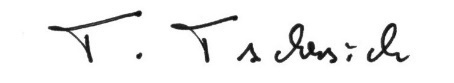 T. Tschersich